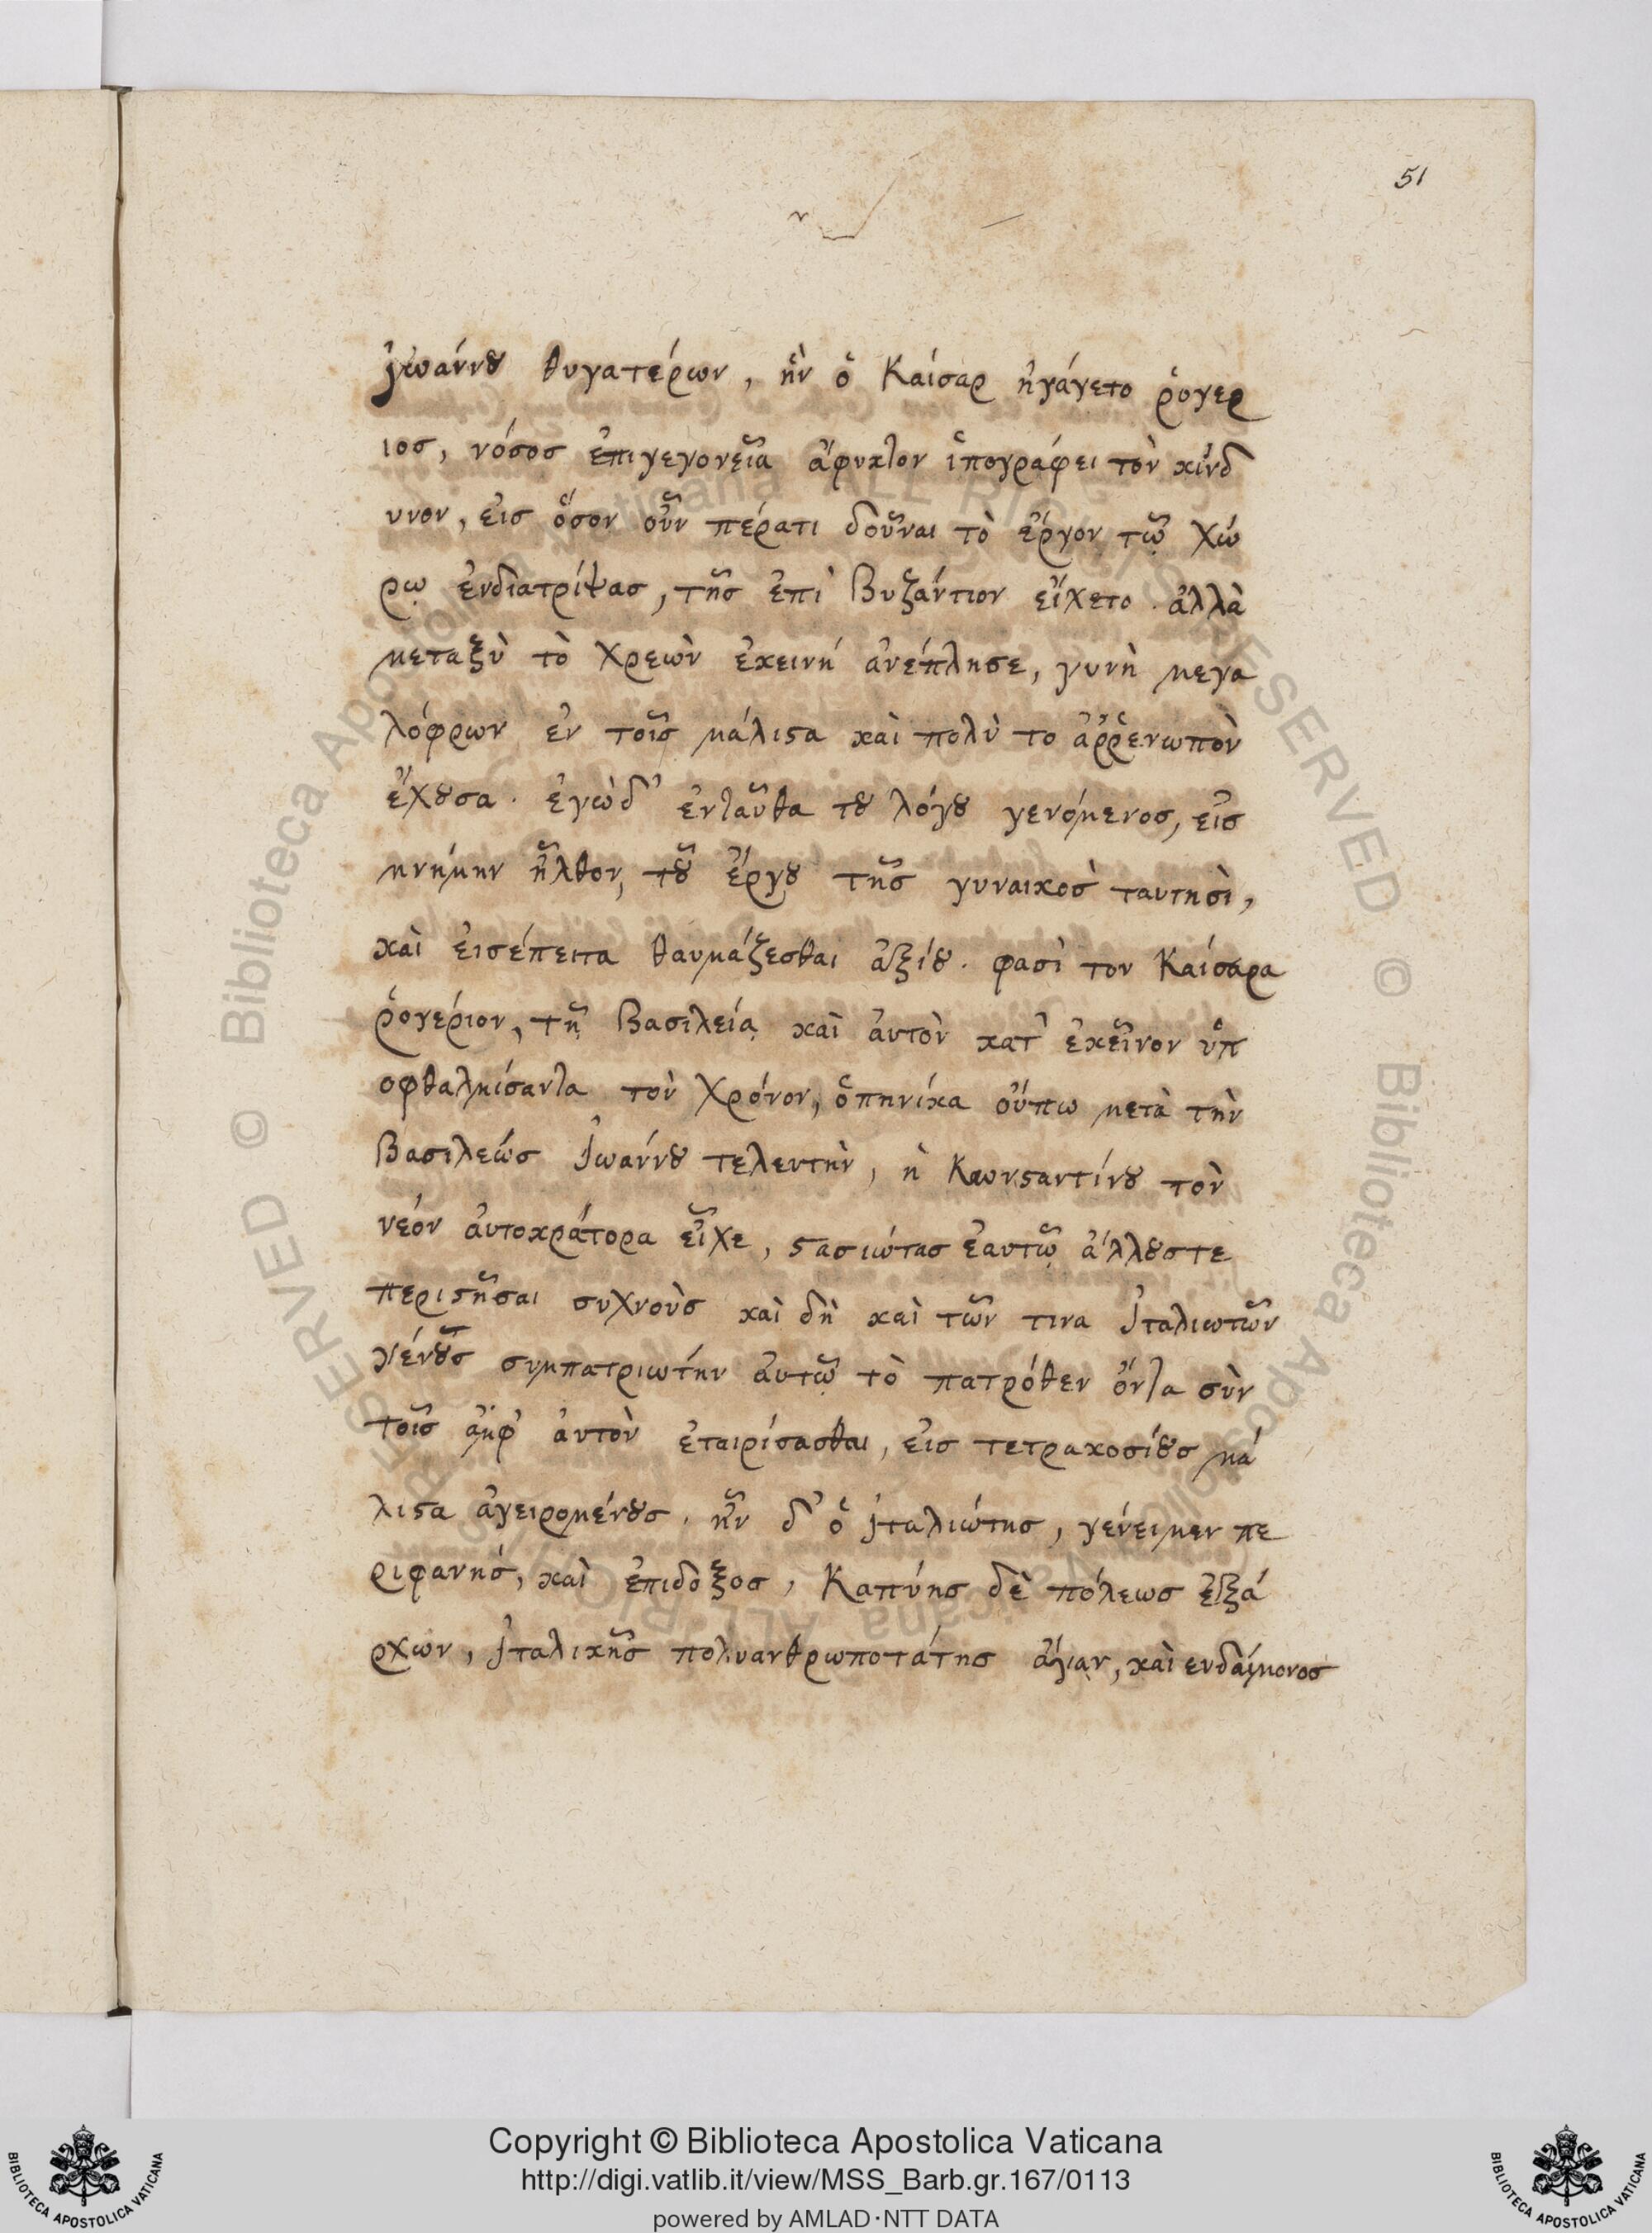 51
Ἰωάννου θυγατέρων, ἣν ὁ Καίσαρ ἠγάγετο ῥογερ
ιοσ, νόσος ἐπιγεγονεῖα ἄφυκτον ὑπογράφει τὸν κίνδ
υνον, εἰσ ὅσον οὖν πέρατι δοῦναι τὸ ἔργον τῷ χώ
ρῳ ἐνδιατρίψασ, τῆσ ἐπὶ Βυζάντιον εἴχετο. ἀλλὰ
μεταξὺ τὸ χρεὼν ἐκεινή ἀνέπλησε, γυνὴ μεγα
λόφρων ἐν τοῖσ μάλιϛα καὶ πολὺ το ἀῤῥενωπὸν
ἔχουσα. ἐγὼ δ' ἐνταῦθα τοῦ λόγου γενόμενοσ, εἰσ
μνήμην ἦλθον, τοῦ ἔργου τῆσ γυναικοσ ταυτησὶ,
καὶ ἐισέπειτα θαυμάζεσθαι ἀξίου. φασὶ τον Καίσαρα
ῥογέριον, τῇ Βασιλείᾳ καὶ ἀυτὸν κατ' ἐκεῖνον ὑπ
οφθαλμίσαντα τὸν χρόνον, ὁπηνίκα οὔπω μετὰ τὴν
Βασιλεώσ Ἰωάννου τελευτὴν, ἡ Κωνϛαντίνου τὸν
νεόν ἀυτοκράτορα εἶχε, ϛασιώτασ ἑαυτῷ ἄλλουστε
περιϛῆσαι συχνοὺσ καὶ δὴ καὶ τῶν τινα Ἰταλιωτῶν
γένουσ συμπατριωτήν ἀυτῷ τὸ πατρόθεν ὄντα σὺν
τοῖσ ἀμφ' ἀυτὸν ἑταιρίσασθαι, εἰσ τετρακοσίουσ μά
λιϛα ἀγειρομένουσ. ἦν δ' ὁ Ἰταλιώτησ, γένειμεν πε
ριφανησ, καὶ ἐπιδοξοσ, Καπύησ δὲ πόλεωσ ἐξά
ρχων, Ἰταλικῆσ πολυανθρωποτάτησ ἄγαν, καὶ ευδαίμονοσ
Copyright © Biblioteca Apostolica Vaticana
http://digi.vatlib.it/view/MSS_Barb.gr.167/0113
powered by AMLAD·NTT DATA